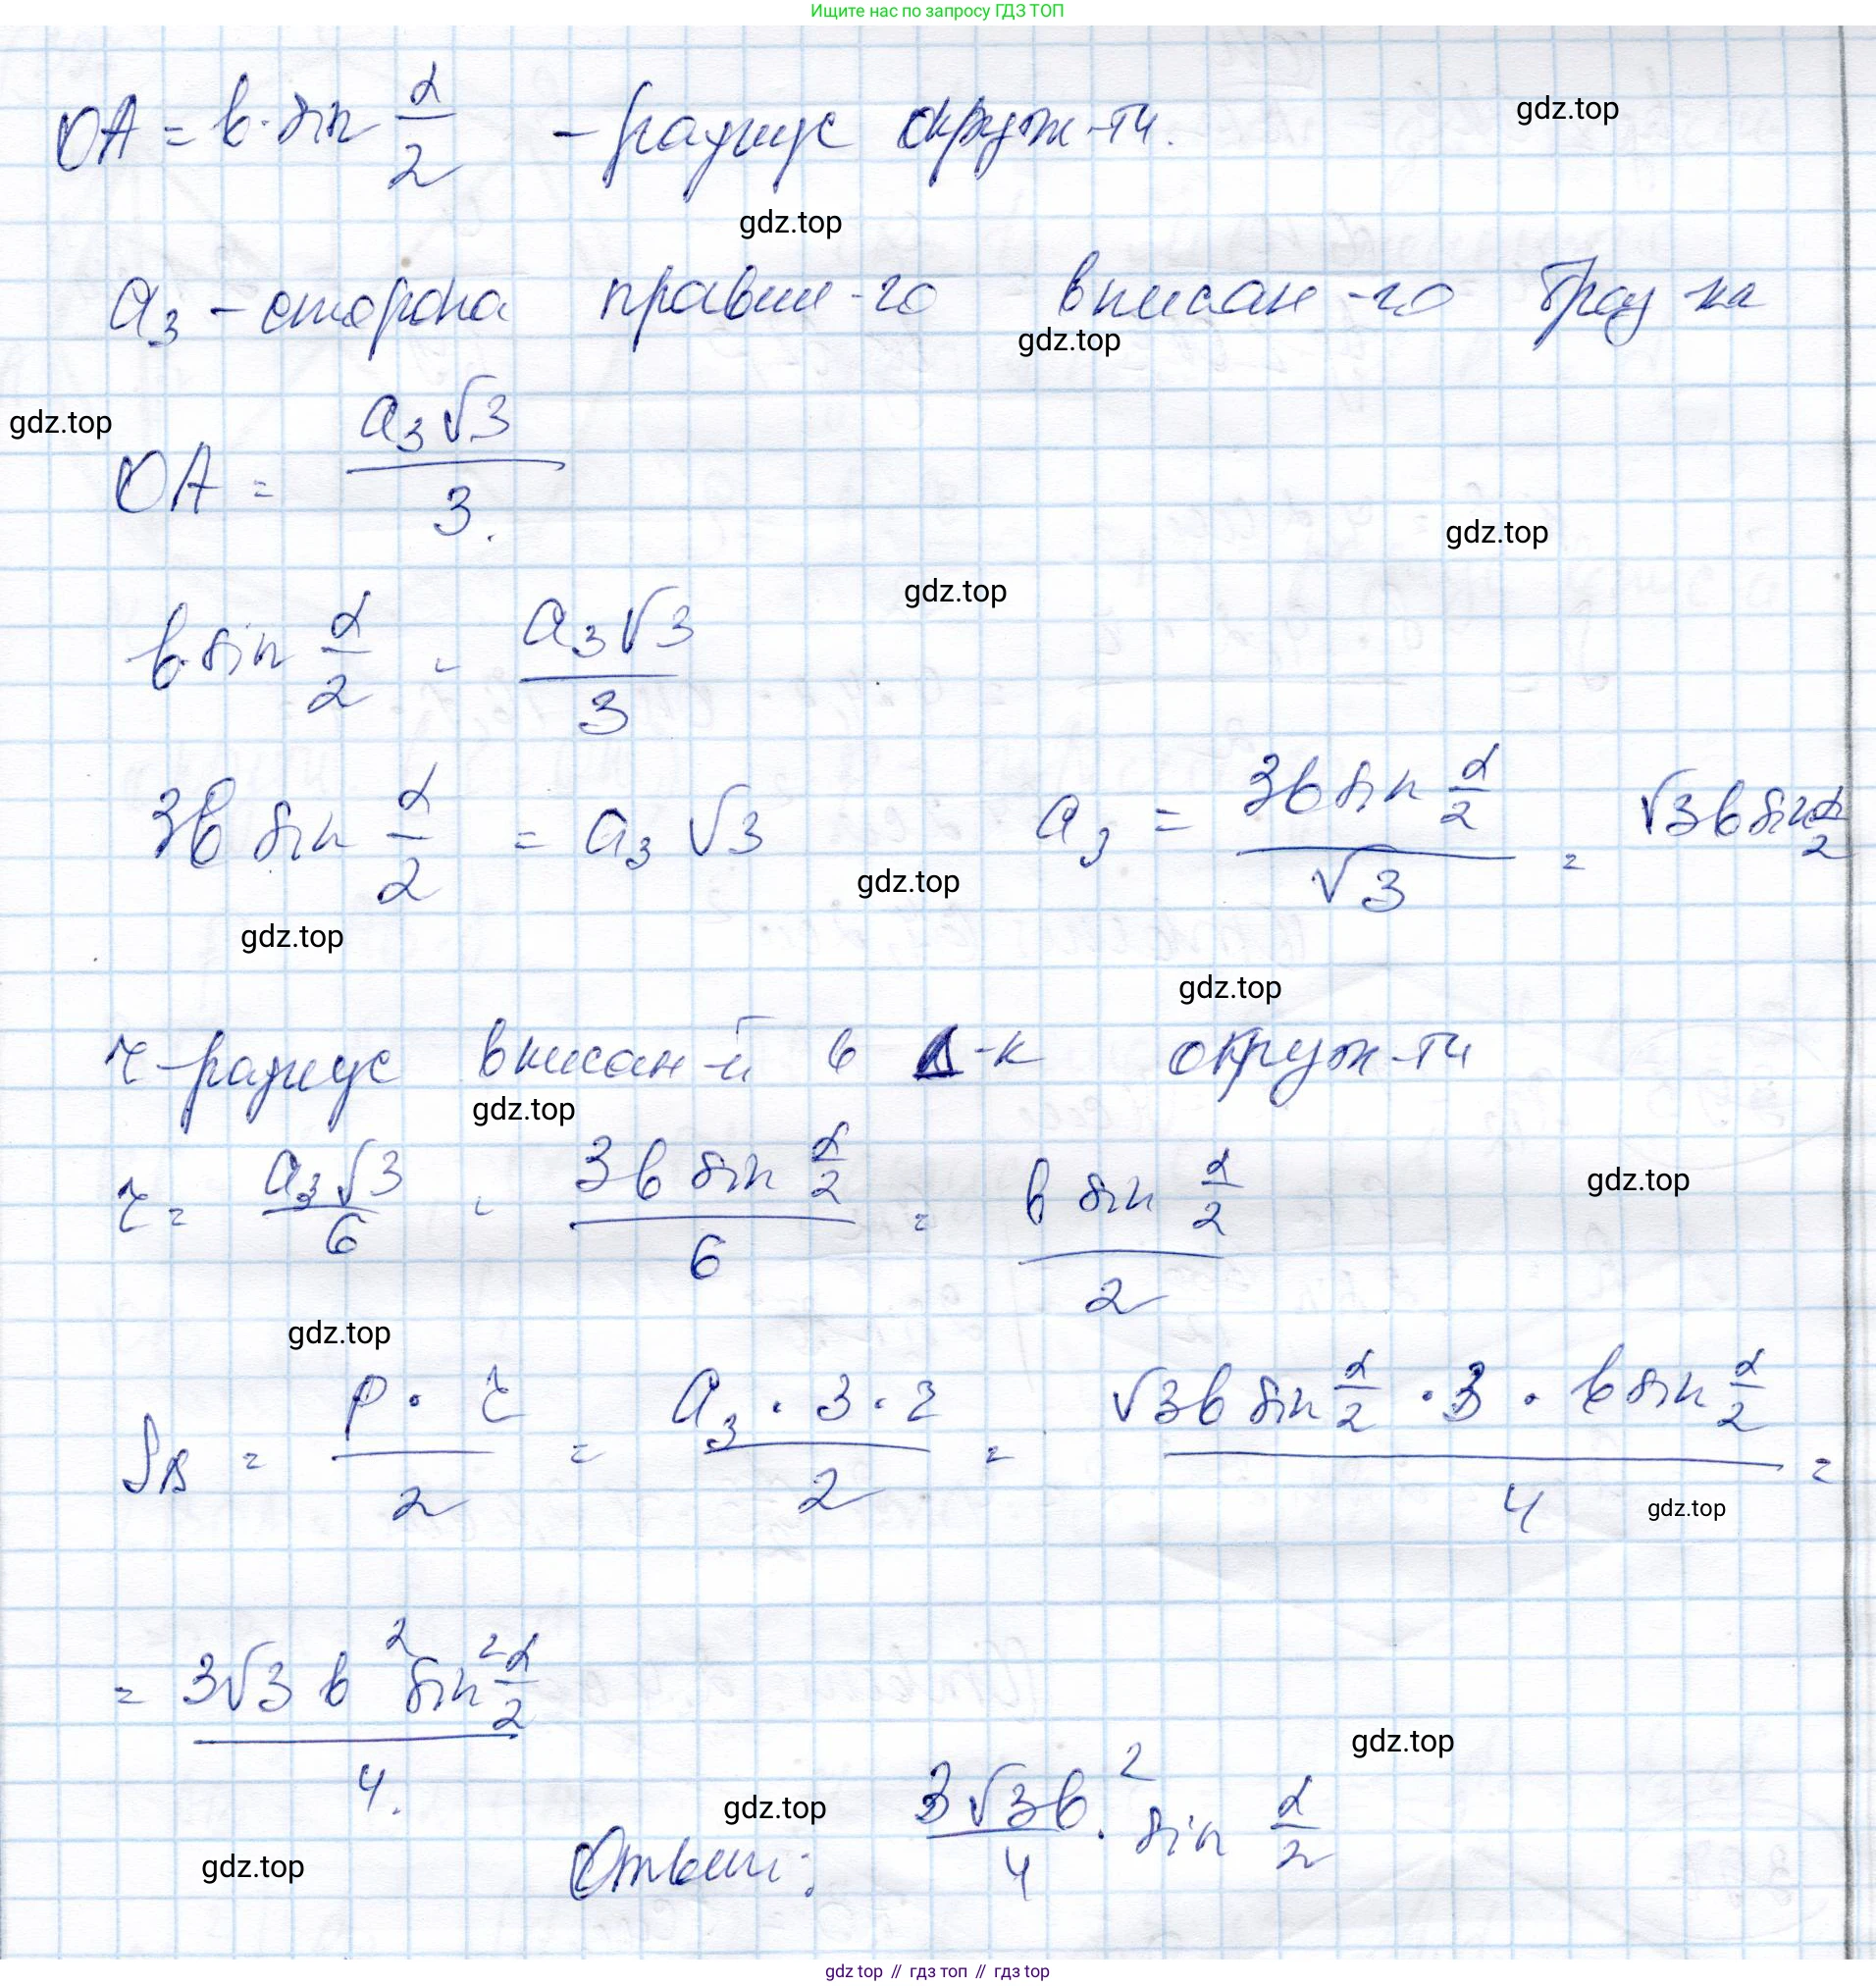 Ищите нас по запросу ГДЗ ТОП
OA = b · sin α/2 – радиус окруж-ти.
gdz.top
gdz.top
a₃ – сторона правил-го вписан-го треу-ка
gdz.top
gdz.top
OA = a₃√3/3.
gdz.top
gdz.top
b·sin α/2 = a₃√3/3
3b sin α/2 = a₃√3 a₃ = 3b sin α/2 / √3 = √3 b sin α/2
gdz.top
gdz.top
gdz.top
r – радиус вписан-й в Δ-к окруж-ти
gdz.top
r = a₃√3/6 = 3b sin α/2 / 6 = b sin α/2 / 2
gdz.top
gdz.top
SΔ = P · r / 2 = a₃ · 3 · r / 2 = √3 b sin α/2 · 3 · b sin α/2 / 4 =
gdz.top
= 3√3 b² sin² α/2 / 4.
gdz.top
gdz.top
Ответ: 3√3b²/4 · sin α/2
gdz.top
gdz top // гдз топ // гдз top